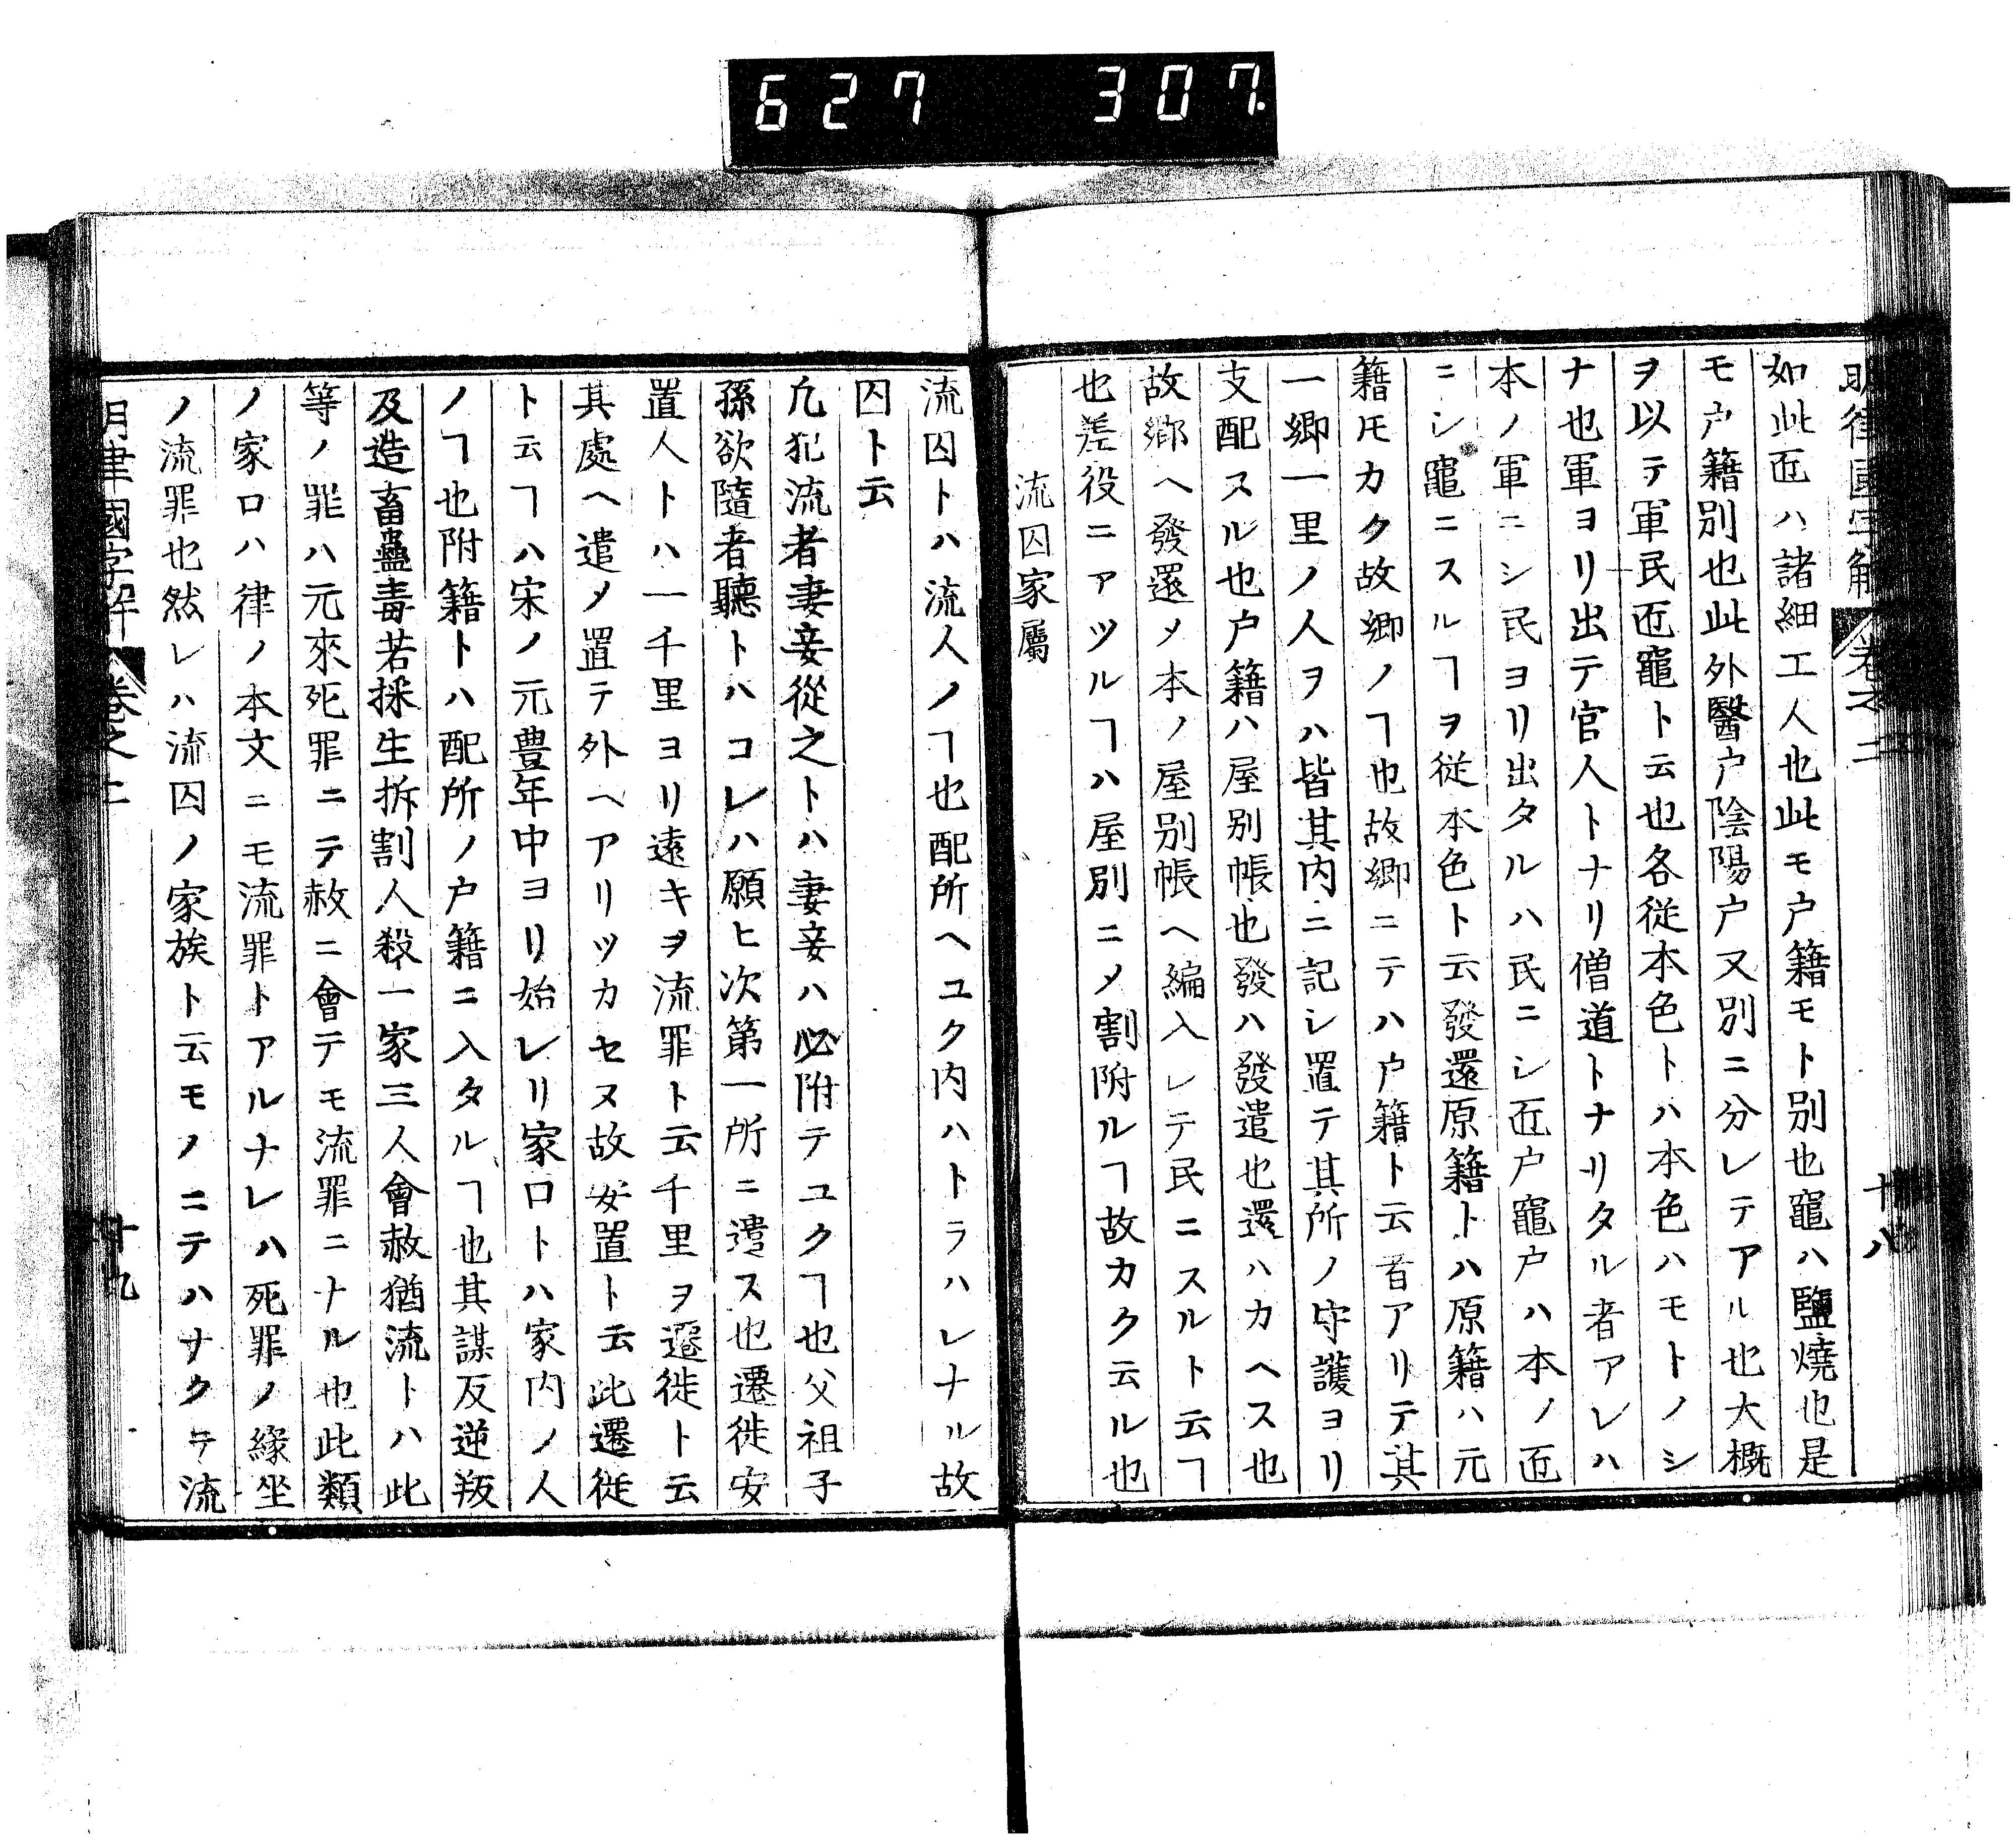 627 307
明律國字解 卷之二 十八
如此匠ハ諸細工人也此モ户籍モト別也竈ハ鹽燒也是
モ户籍別也此外醫户陰陽户又別ニ分レテアル也大概
ヲ以テ軍民匠竈ト云也各從本色トハ本色ハモトノシ
ナ也軍ヨリ出テ官人トナリ僧道トナリタル者アレハ
本ノ軍ニシ民ヨリ出タルハ民ニシ匠户竈户ハ本ノ匠
ニシ竈ニスルヿヲ從本色ト云發還原籍トハ原籍ハ元
籍𪜈カク故郷ノヿ也故郷ニテハ户籍ト云音アリテ其
一郷一里ノ人ヲハ皆其内ニ記シ置テ其所ノ守護ヨリ
支配スル也户籍ハ屋別帳也發ハ發遣也還ハカヘス也
故郷ヘ發還メ本ノ屋別帳ヘ編入レテ民ニスルト云ヿ
也差役ニアツルヿハ屋別ニメ割附ルヿ故カク云ル也
流囚家屬
流囚トハ流人ノヿ也配所ヘユク内ハトラハレナル故
囚ト云
凢犯流者妻妾從之トハ妻妾ハ必附テユクヿ也父祖子
孫欲隨者聽トハコレハ願ヒ次第一所ニ遣ス也遷徙安
置人トハ一千里ヨリ遠キヲ流罪ト云千里ヲ遷徙ト云
其處ヘ遣メ置テ外ヘアリツカセヌ故安置ト云此遷徙
ト云ヿハ宋ノ元豊年中ヨリ始レリ家口トハ家内ノ人
ノヿ也附籍トハ配所ノ户籍ニ入タルヿ也其謀反逆叛
及造畜蠱毒若採生拆割人殺一家三人會赦猶流トハ此
等ノ罪ハ元來死罪ニテ赦ニ會テモ流罪ニナル也此類
ノ家口ハ律ノ本文ニモ流罪トアルナレハ死罪ノ緣坐
ノ流罪也然レハ流囚ノ家族ト云モノニテハナクテ流
明律國字解 卷之二 十九